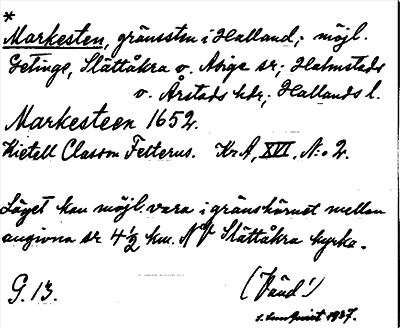 *
Markesten, gränssten i Halland; möjl.
Getinge, Slättåkra o. Abige sr; Halmstads
o. Årstads hdr, Hallands l.
Markesteen 1652.
Kietell Classon Felterus. Kr A, XVI, N:o 2.
Läget kan möjl. vara i gränshörnet mellan
angivna sr 4½ km. NV Slättåkra kyrka.
G. 13.
(Vänd!)
1937.